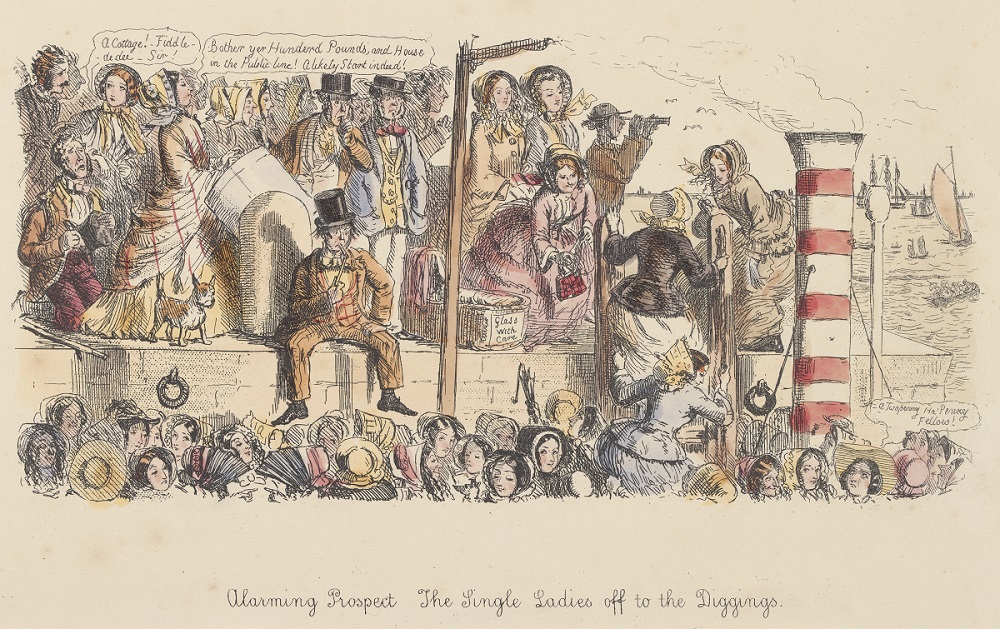 A Cottage! - Fiddle-
de dee - Sir!
Bother yer Hunderd Pounds, and House
in the Public line! A likely Start indeed!
Glass
with
care
- a Twopenny Ha'Penny
Fellow!
Alarming Prospect The Single Ladies off to the Diggings.